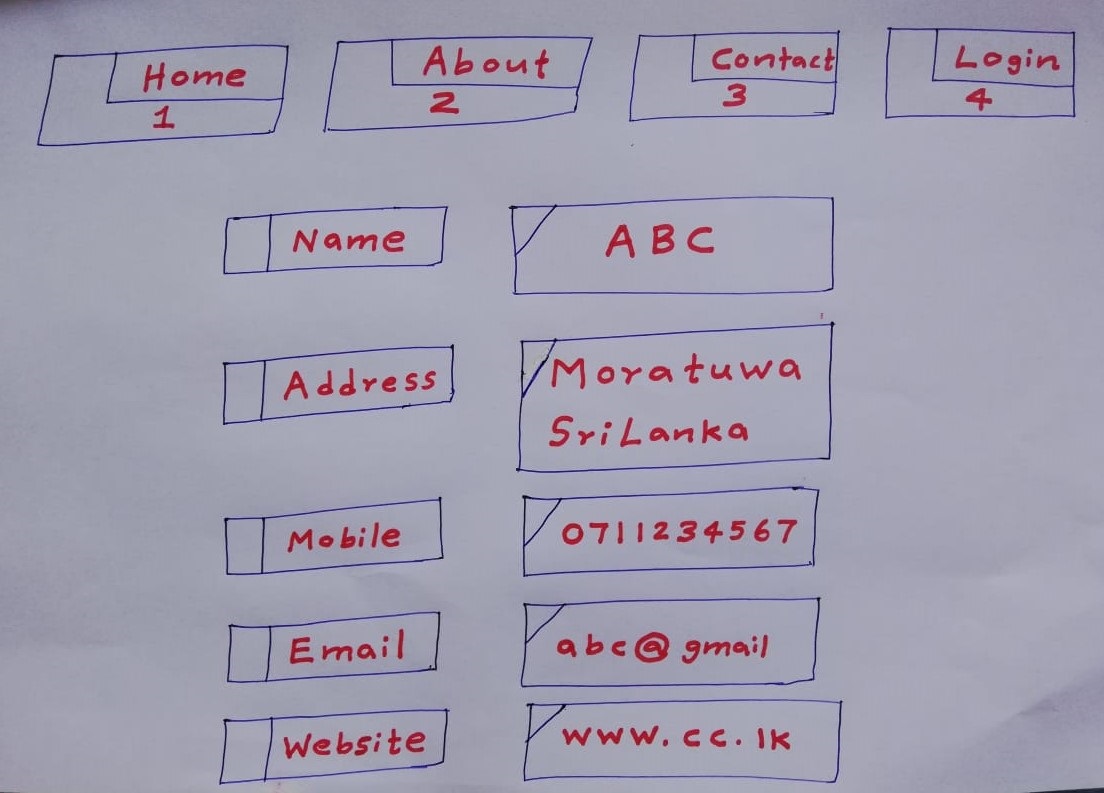 Home About Contact Login
1 2 3 4
Name ABC
Address Moratuwa
SriLanka
Mobile 0711234567
Email abc@gmail
Website www.cc.lk